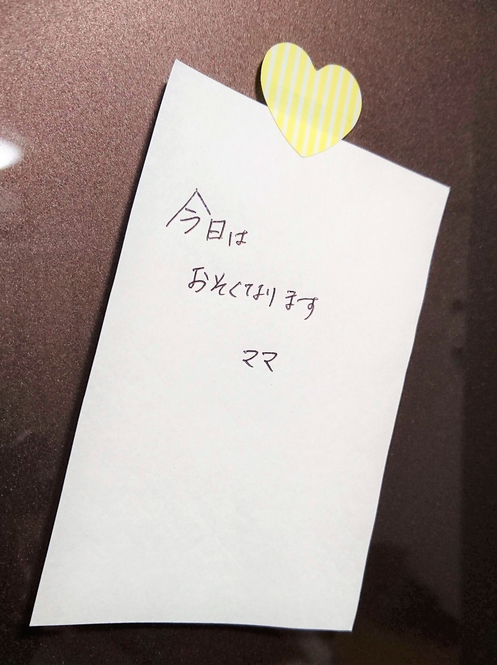 今日は
おそくなります
ママ